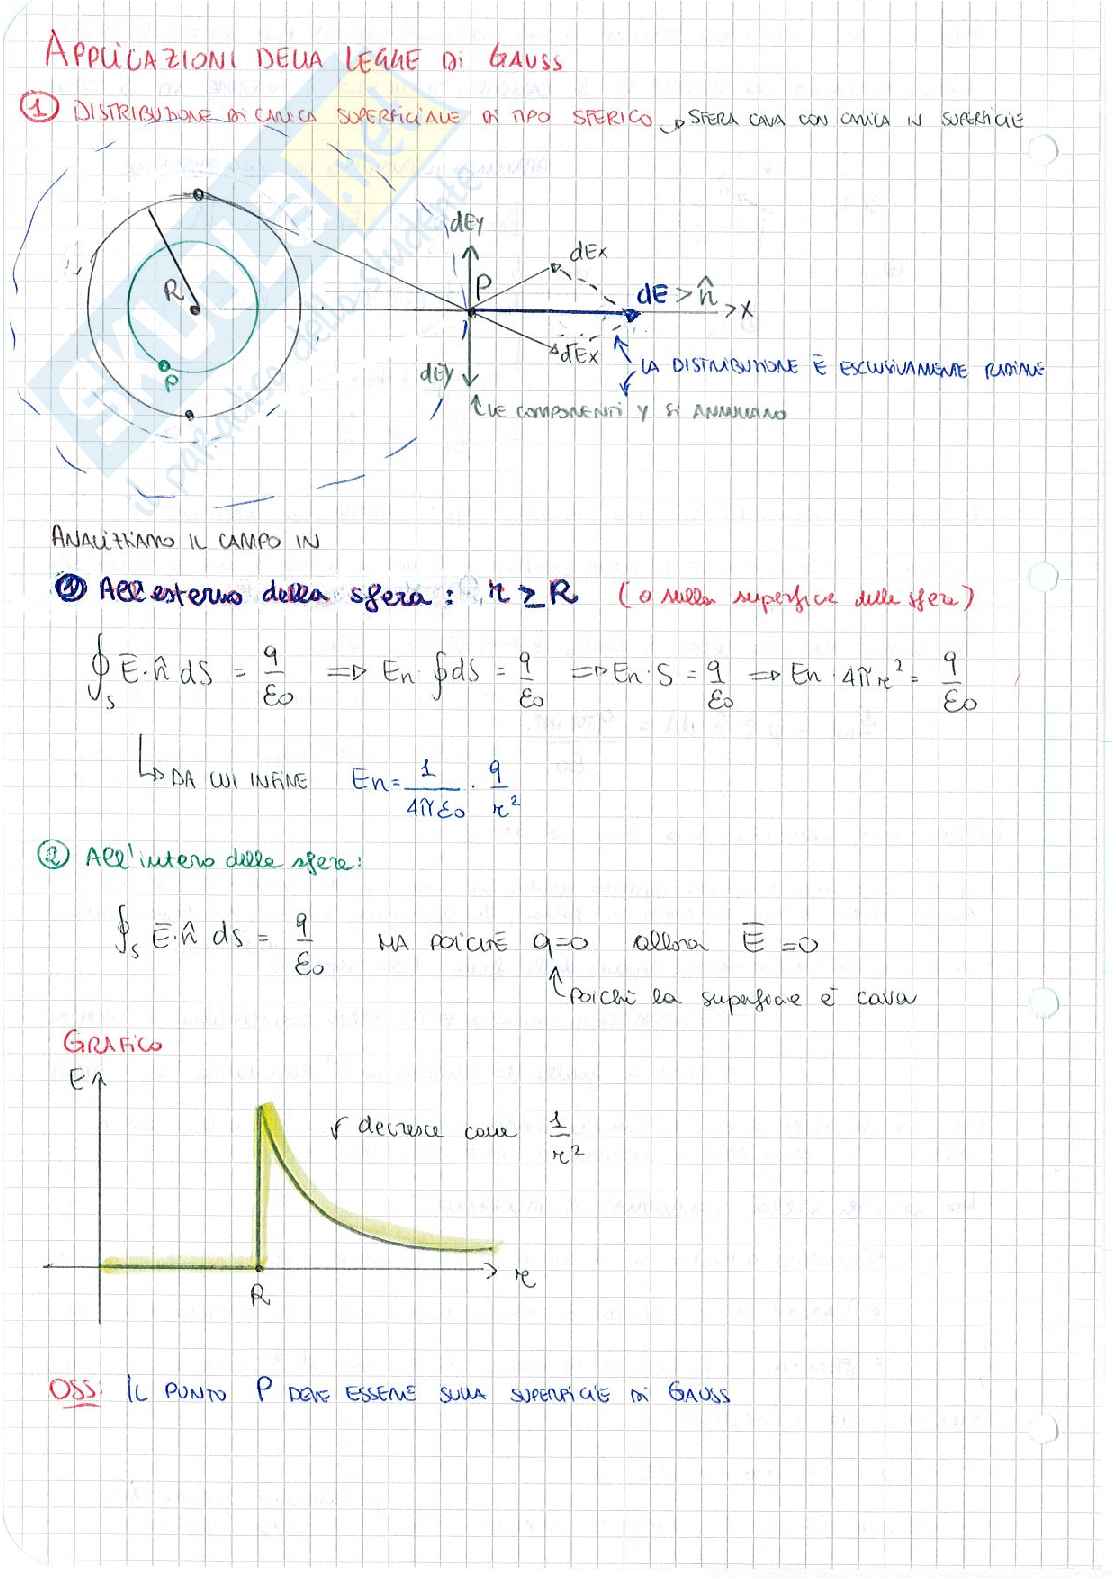 APPLICAZIONI DELLA LEGGE DI GAUSS
① DISTRIBUZIONE DI CARICA SUPERFICIALE DI TIPO SFERICO → SFERA CAVA CON CARICA IN SUPERFICIE
SKUOLA.net
il paradiso dello studente
dEy
dEx
P
R
dE > n̂
> x
dEx
P
dEy
LA DISTRIBUZIONE È ESCLUSIVAMENTE RADIALE
LE COMPONENTI Y SI ANNULLANO
ANALIZZIAMO IL CAMPO IN
① All'esterno della sfera: r ≥ R (o sulla superfice della sfera)
∮s Ē·n̂ dS = q/ε0 => En·∮dS = q/ε0 => En·S = q/ε0 => En·4πr² = q/ε0
DA CUI INFINE En = 1/4πε0 · q/r²
② All'interno della sfera:
∮s Ē·n̂ ds = q/ε0 MA POICHÈ q=0 allora Ē=0
poichè la superficie è cava
GRAFICO
E
decresce come 1/r²
r
R
OSS: IL PUNTO P DEVE ESSERE SULLA SUPERFICIE DI GAUSS